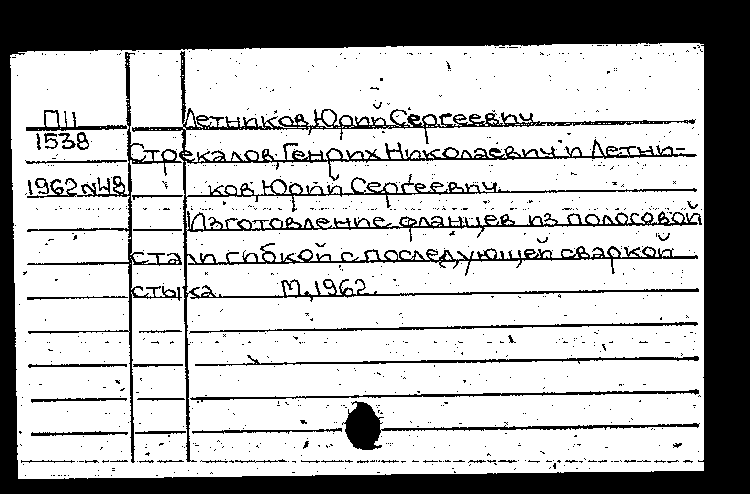 П11
1538
1962 №48
Летников, Юрий Сергеевич
Стрекалов, Генрих Николаевич и Летни-
ков, Юрий Сергеевич.
Изготовление фланцев из полосовой
стали гибкой с последующей сваркой
стыка. М., 1962.